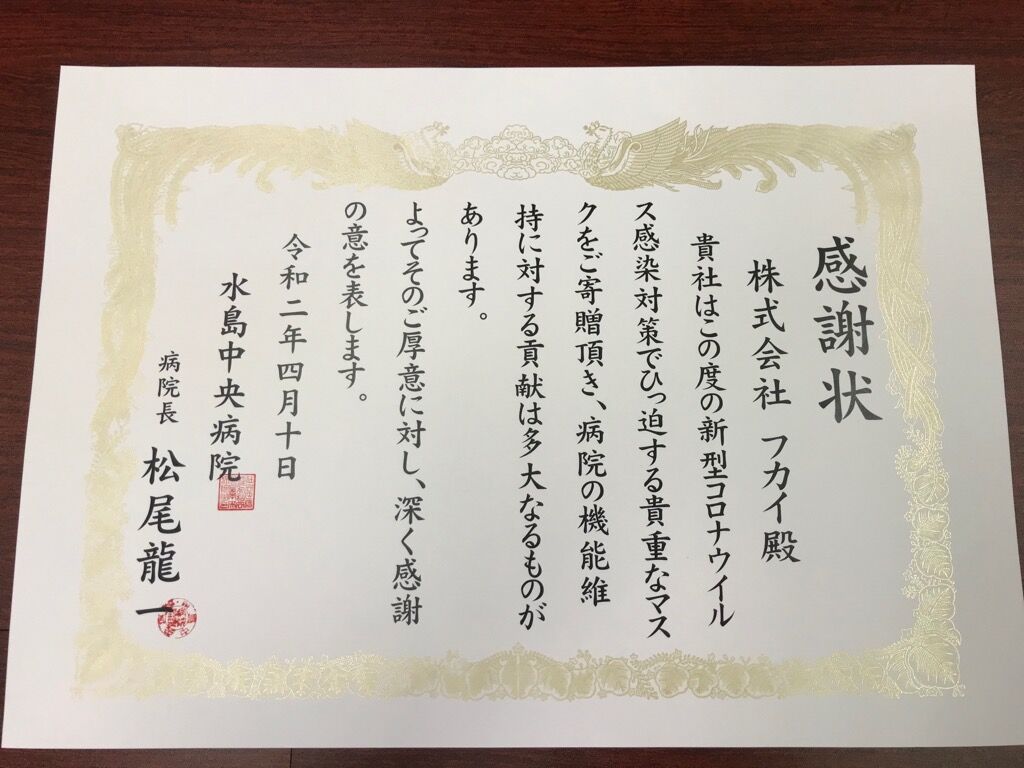 感謝状
株式会社 フカイ殿
貴社はこの度の新型コロナウイル
ス感染対策でひっ迫する貴重なマス
クをご寄贈頂き、病院の機能維
持に対する貢献は多大なるものが
あります。
よってそのご厚意に対し、深く感謝
の意を表します。
令和二年四月十日
水島中央病院
病院長 松尾龍一